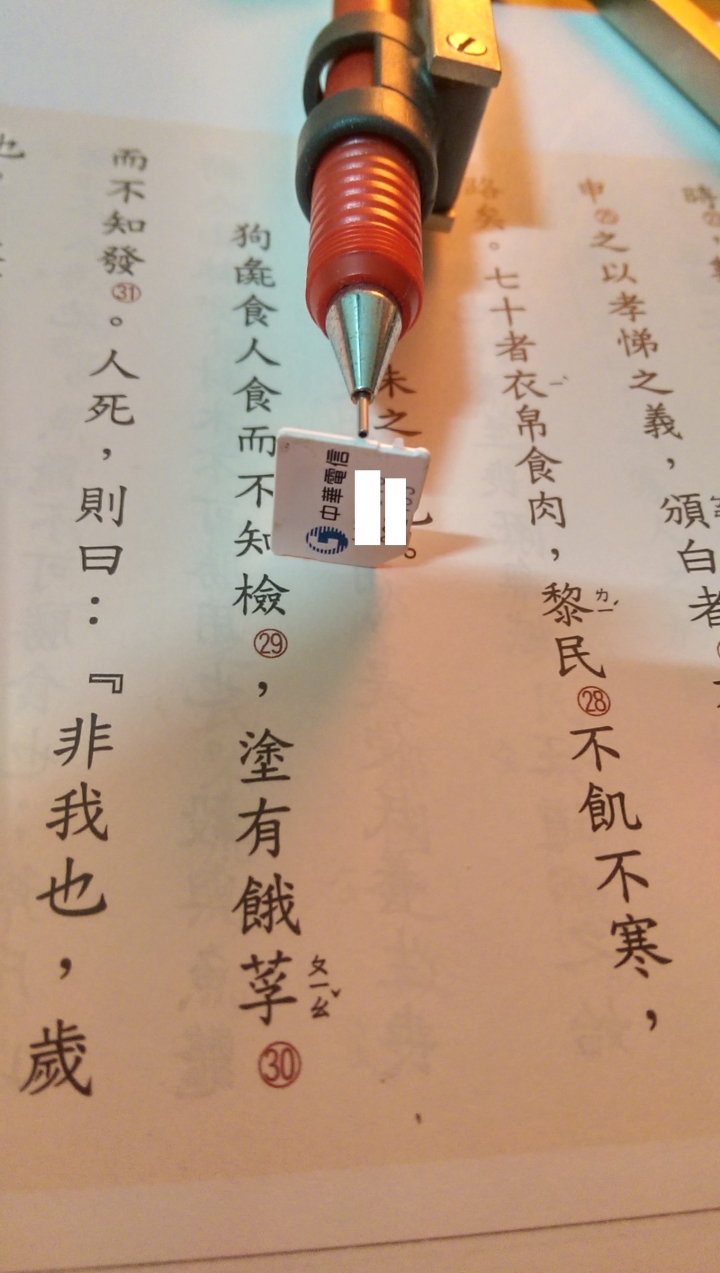 時
申㉕之以孝悌之義，頒白者
矣。七十者衣帛食肉，黎ㄌㄧˊ民㉘不飢不寒，
未之
也。
狗彘食人食而不知檢㉙，塗有餓莩ㄆㄧㄠˇ㉚
而不知發㉛。人死，則曰：『非我也，歲
也
中華電信